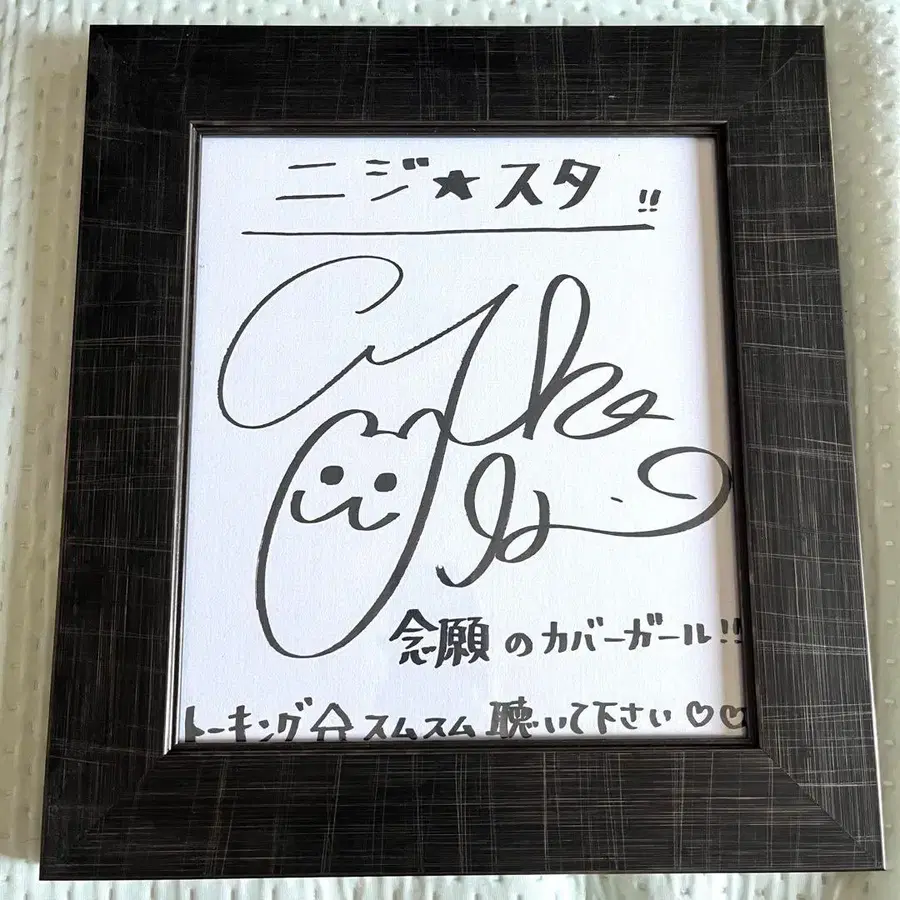 ニジ★スタ!!
念願のカバーガール!!
トーキング☆スムスム聴いて下さい♡♡